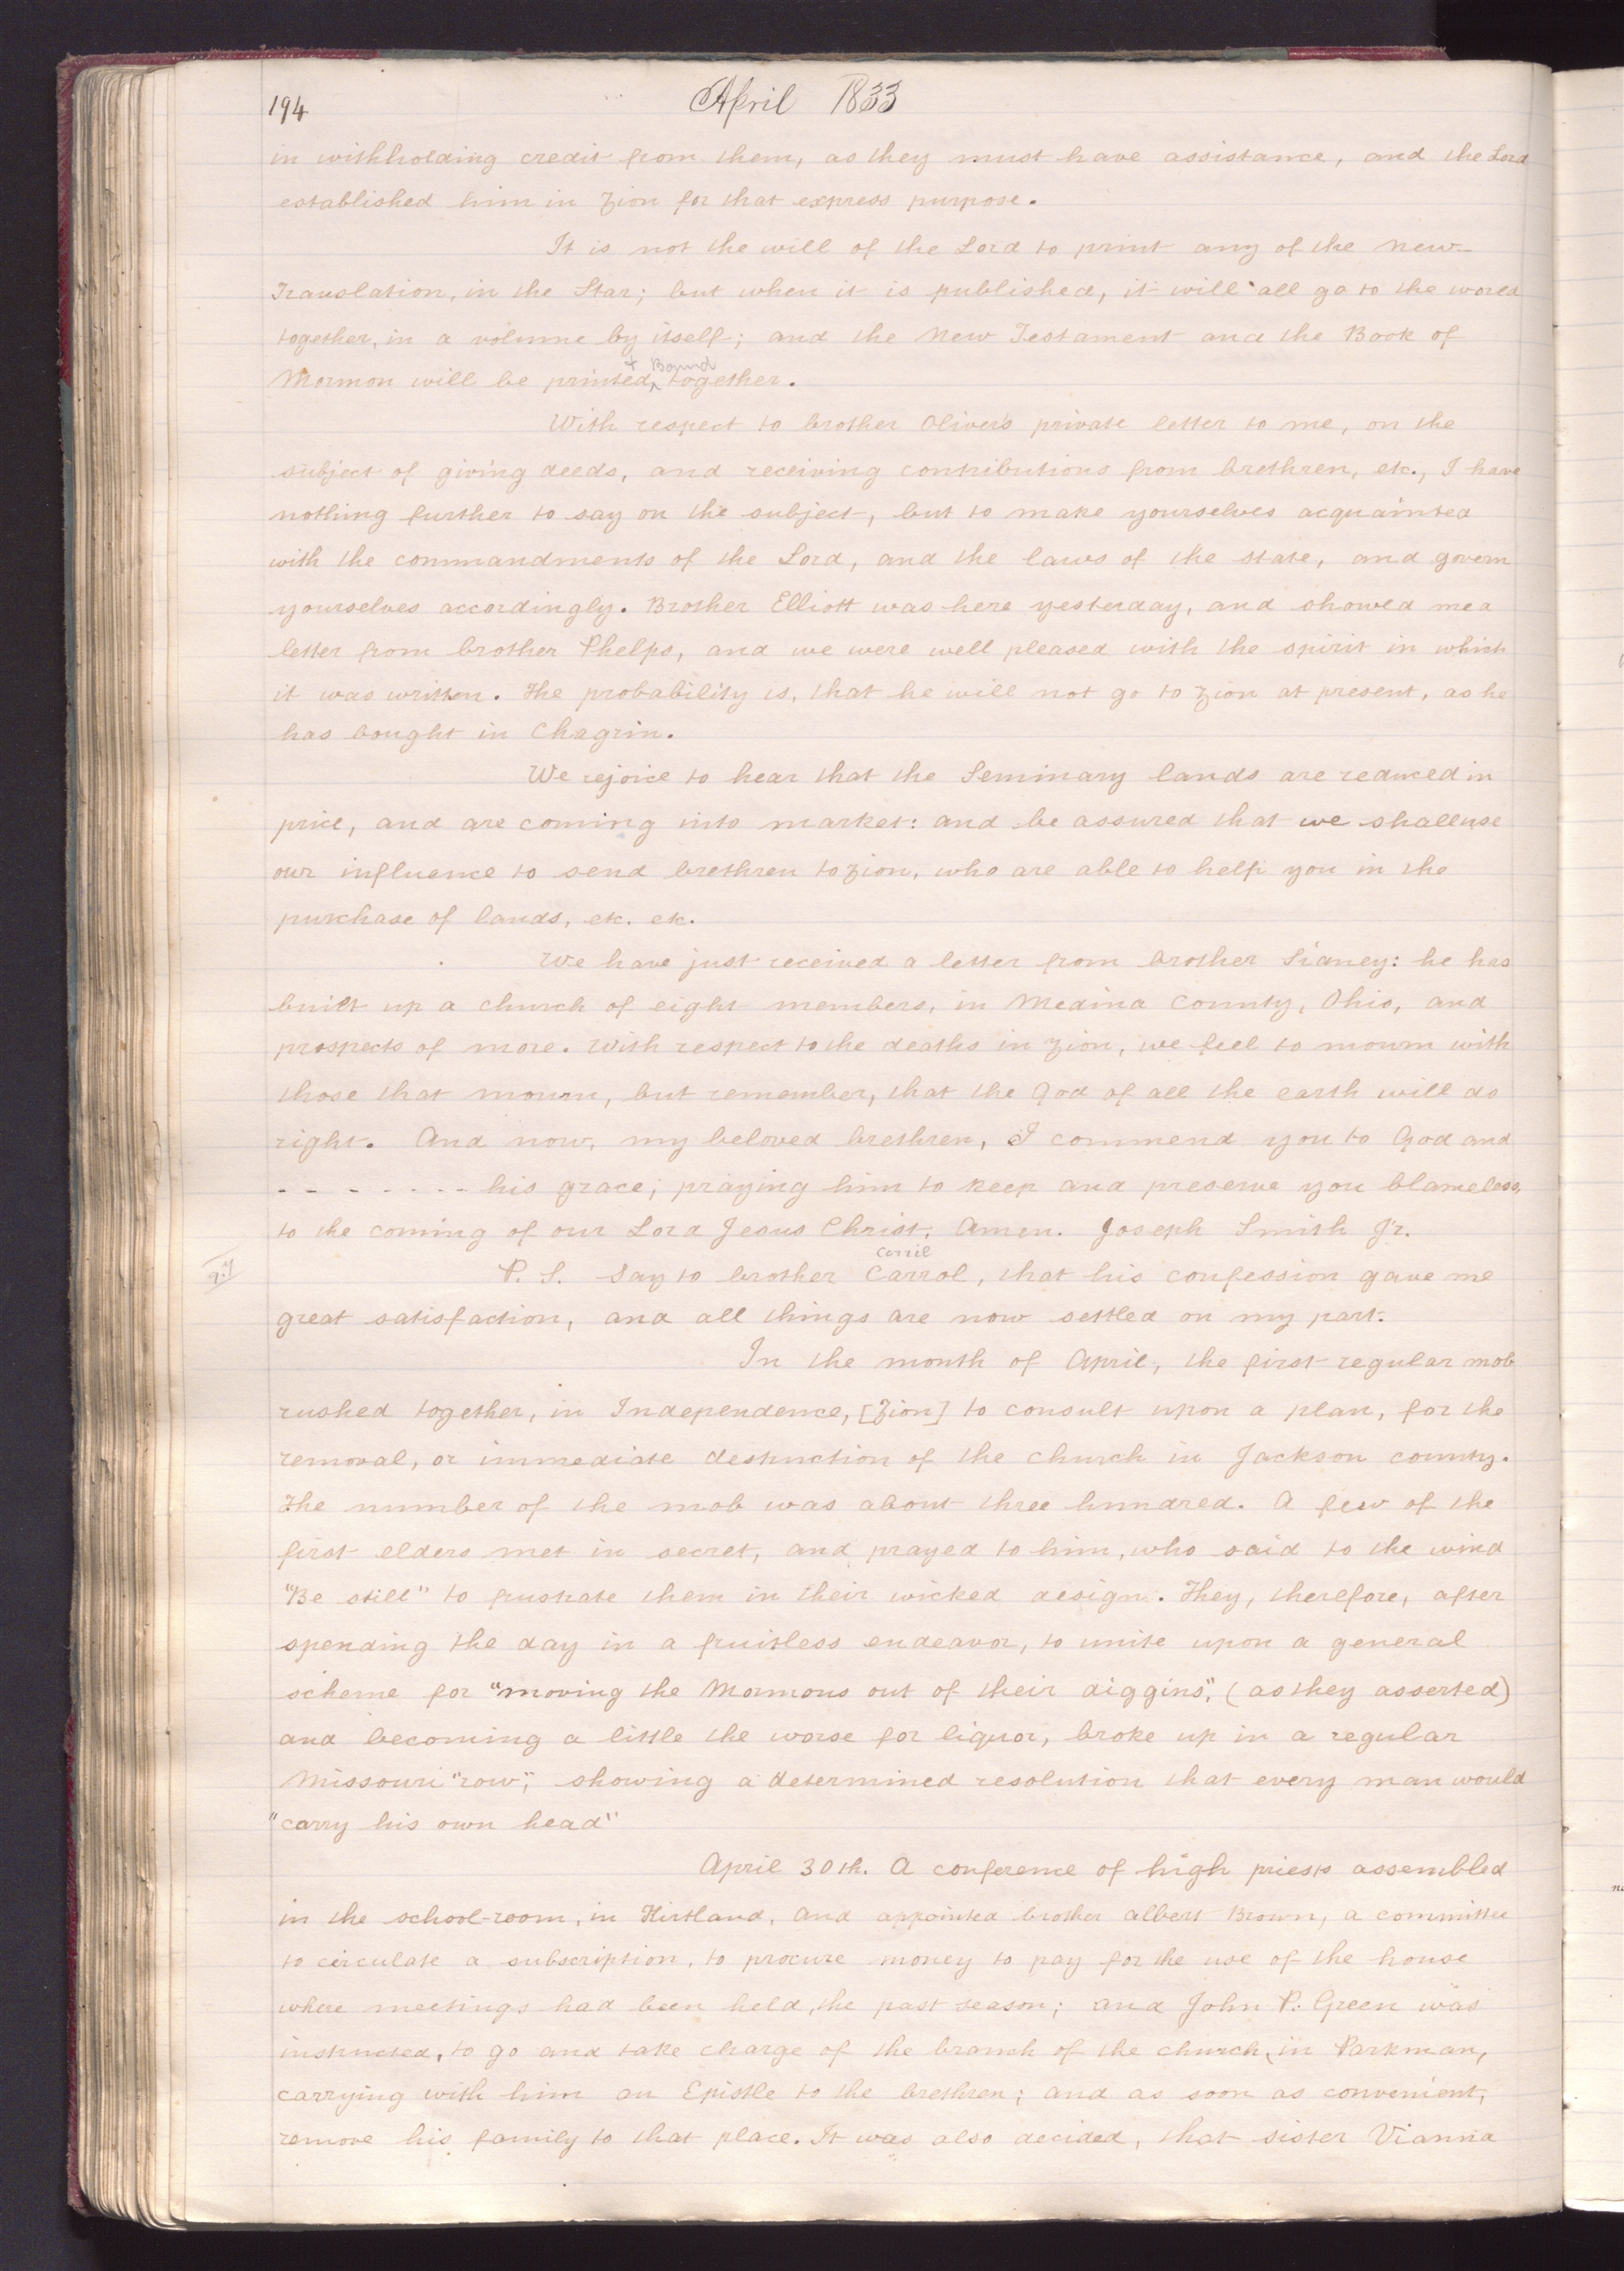 194
April 1833
in withholding credit from them, as they must have assistance, and the Lord
established him in Zion for that express purpose.
It is not the will of the Lord to print any of the new
Translation, in the Star; but when it is published, it will all go to the world
together, in a volume by itself; and the New Testament and the Book of
+ Bound
Mormon will be printed, ^ together.
With respect to brother Oliver's private letter to me, on the
subject of giving deeds, and receiving contributions from brethren, etc., I have
nothing further to say on the subject, but to make yourselves acquainted
with the commandments of the Lord, and the laws of the state, and govern
yourselves accordingly. Brother Elliott was here yesterday, and showed me a
letter from brother Phelps, and we were well pleased with the spirit in which
it was written. The probability is, that he will not go to Zion at present, as he
has bought in Chagrin.
We rejoice to hear that the Seminary lands are reduced in
price, and are coming into market: and be assured that we shall use
our influence to send brethren to Zion, who are able to help you in the
purchase of lands, etc. etc.
We have just received a letter from brother Sidney: he has
built up a church of eight members, in Medina County, Ohio, and
prospects of more. With respect to the deaths in Zion, we feel to mourn with
those that mourn, but remember, that the God of all the earth will do
right. And now, my beloved brethren, I commend you to God and
- - - - - - - - his grace; praying him to keep and preserve you blameless,
to the coming of our Lord Jesus Christ, Amen. Joseph Smith Jr.
Corril
P. S. Say to brother Carrol, that his confession gave me
great satisfaction, and all things are now settled on my part.
In the month of April, the first regular mob
rushed together, in Independence, [Zion] to consult upon a plan, for the
removal, or immediate destruction of the church in Jackson county.
The number of the mob was about three hundred. A few of the
first elders met in secret, and prayed to him, who said to the wind
"Be still" to frustrate them in their wicked design. They, therefore, after
spending the day in a fruitless endeavor, to unite upon a general
scheme for "moving the Mormons out of their diggins", (as they asserted)
and becoming a little the worse for liquor, broke up in a regular
Missouri "row", showing a determined resolution that every man would
"carry his own head"
April 30th. A conference of high priests assembled
in the school-room, in Kirtland, and appointed brother albert Brown, a committee
to circulate a subscription, to procure money to pay for the use of the house
where meetings had been held, the past season; and John P. Green was
instructed, to go and take charge of the branch of the church, in Parkman,
carrying with him an Epistle to the brethren; and as soon as convenient,
remove his family to that place. It was also decided, that sister Vianna